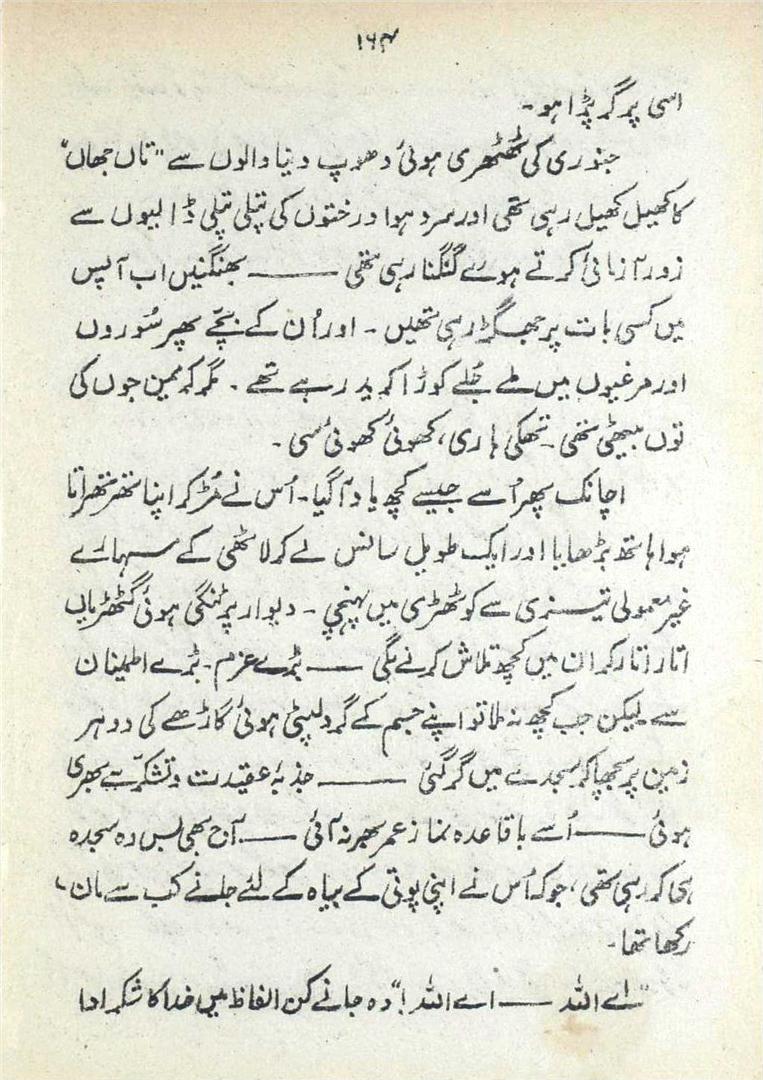 ۱۶۴
اسی پر گر پڑا ہو۔
جنوری کی ٹھٹھری ہوئی دھوپ دنیا والوں سے "تاں جھاں"
کا کھیل کھیل رہی تھی اور سرد ہوا درختوں کی پتلی پتلی ڈالیوں سے
زور آزمائی کرتے ہوئے گنگنا رہی تھی ——— بھنگنیں اب آپس
میں کسی بات پر جھگڑ رہی تھیں۔ اور اُن کے بچّے پھر سُوروں
اور مرغیوں میں ملے جُلے کوڑا کرید رہے تھے۔ مگر کریمن جوں کی
توں بیٹھی تھی۔ تھکی ہاری، کھوئی کھوئی سی۔
اچانک پھر اُسے جیسے کچھ یاد آگیا۔ اُس نے مُڑ کر اپنا تھرتھراتا
ہوا ہاتھ بڑھایا اور ایک طویل سانس لے کر لاٹھی کے سہارے
غیر معمولی تیزی سے کوٹھڑی میں پہنچی۔ دیوار پر ٹنگی ہوئی گٹھڑیاں
اتار اتار کر ان میں کچھ تلاش کرنے لگی —— بڑے عزم۔ بڑے اطمینان
سے لیکن جب کچھ نہ ملا تو اپنے جسم کے گرد لپٹی ہوئی گاڑھے کی دوہر
زمین پر بچھا کر سجدے میں گر گئی ——— جذبۂ عقیدت و تشکّر سے بھری
ہوئی —— اُسے باقاعدہ نماز عمر بھر نہ آئی —— آج بھی بس وہ سجدہ
ہی کر رہی تھی، جو کہ اُس نے اپنی پوتی کے بیاہ کے لئے جانے کب سے مان
رکھا تھا۔
"اے اللہ —— اے اللہ!" وہ جانے کن الفاظ میں خدا کا شکر ادا